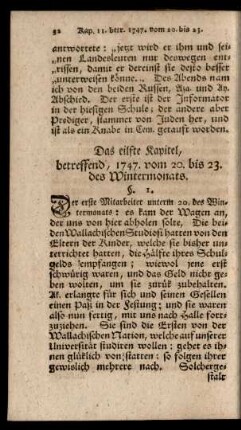 82 Kap. 11. betr. 1747. vom 20. bis 23.
antwortete: „jetzt wird er ihm und sei-
nen Landesleuten nur deswegen ent-
rissen, damit er dereinst sie desto besser
„unterweisen könne„. Des Abends nam
ich von den beiden Russen, Aza. und Ay.
Abschied. Der erste ist der Informator
in der hiesigen Schule; der andere aber
Prediger, stammet von Juden her, und
ist als ein Knabe in Com. getauft worden.
Das eilfte Kapitel,
betreffend, 1747. vom 20. bis 23.
des Wintermonats.
§. 1.
Der erste Mitarbeiter unterm 20. des Win-
termonats: es kam der Wagen an,
der uns von hier abholen solte. Die bei-
den Wallachischen Studiosi hatten von den
Eltern der Kinder, welche sie bisher un-
terrichtet hatten, die Hälfte ihres Schul-
gelds empfangen; wiewol jene erst
schwürig waren, und das Geld nicht ge-
ben wolten, um sie zurük zubehalten.
Al. erlangte für sich und seinen Gesellen
einen Paß in der Festung; und sie waren
also nun fertig, mit uns nach Halle fort-
zuziehen. Sie sind die Ersten von der
Wallachischen Nation, welche auf unserer
Universität studiren wollen; gehet es ih-
nen glüklich von statten: so folgen ihrer
gewislich mehrere nach. Solcherge-
stalt